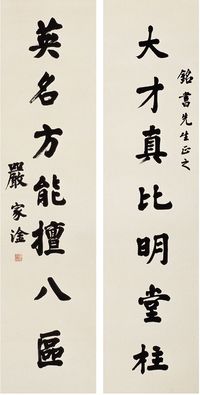 銘書先生正之
大才真比明堂柱
英名方能擅八區
嚴家淦